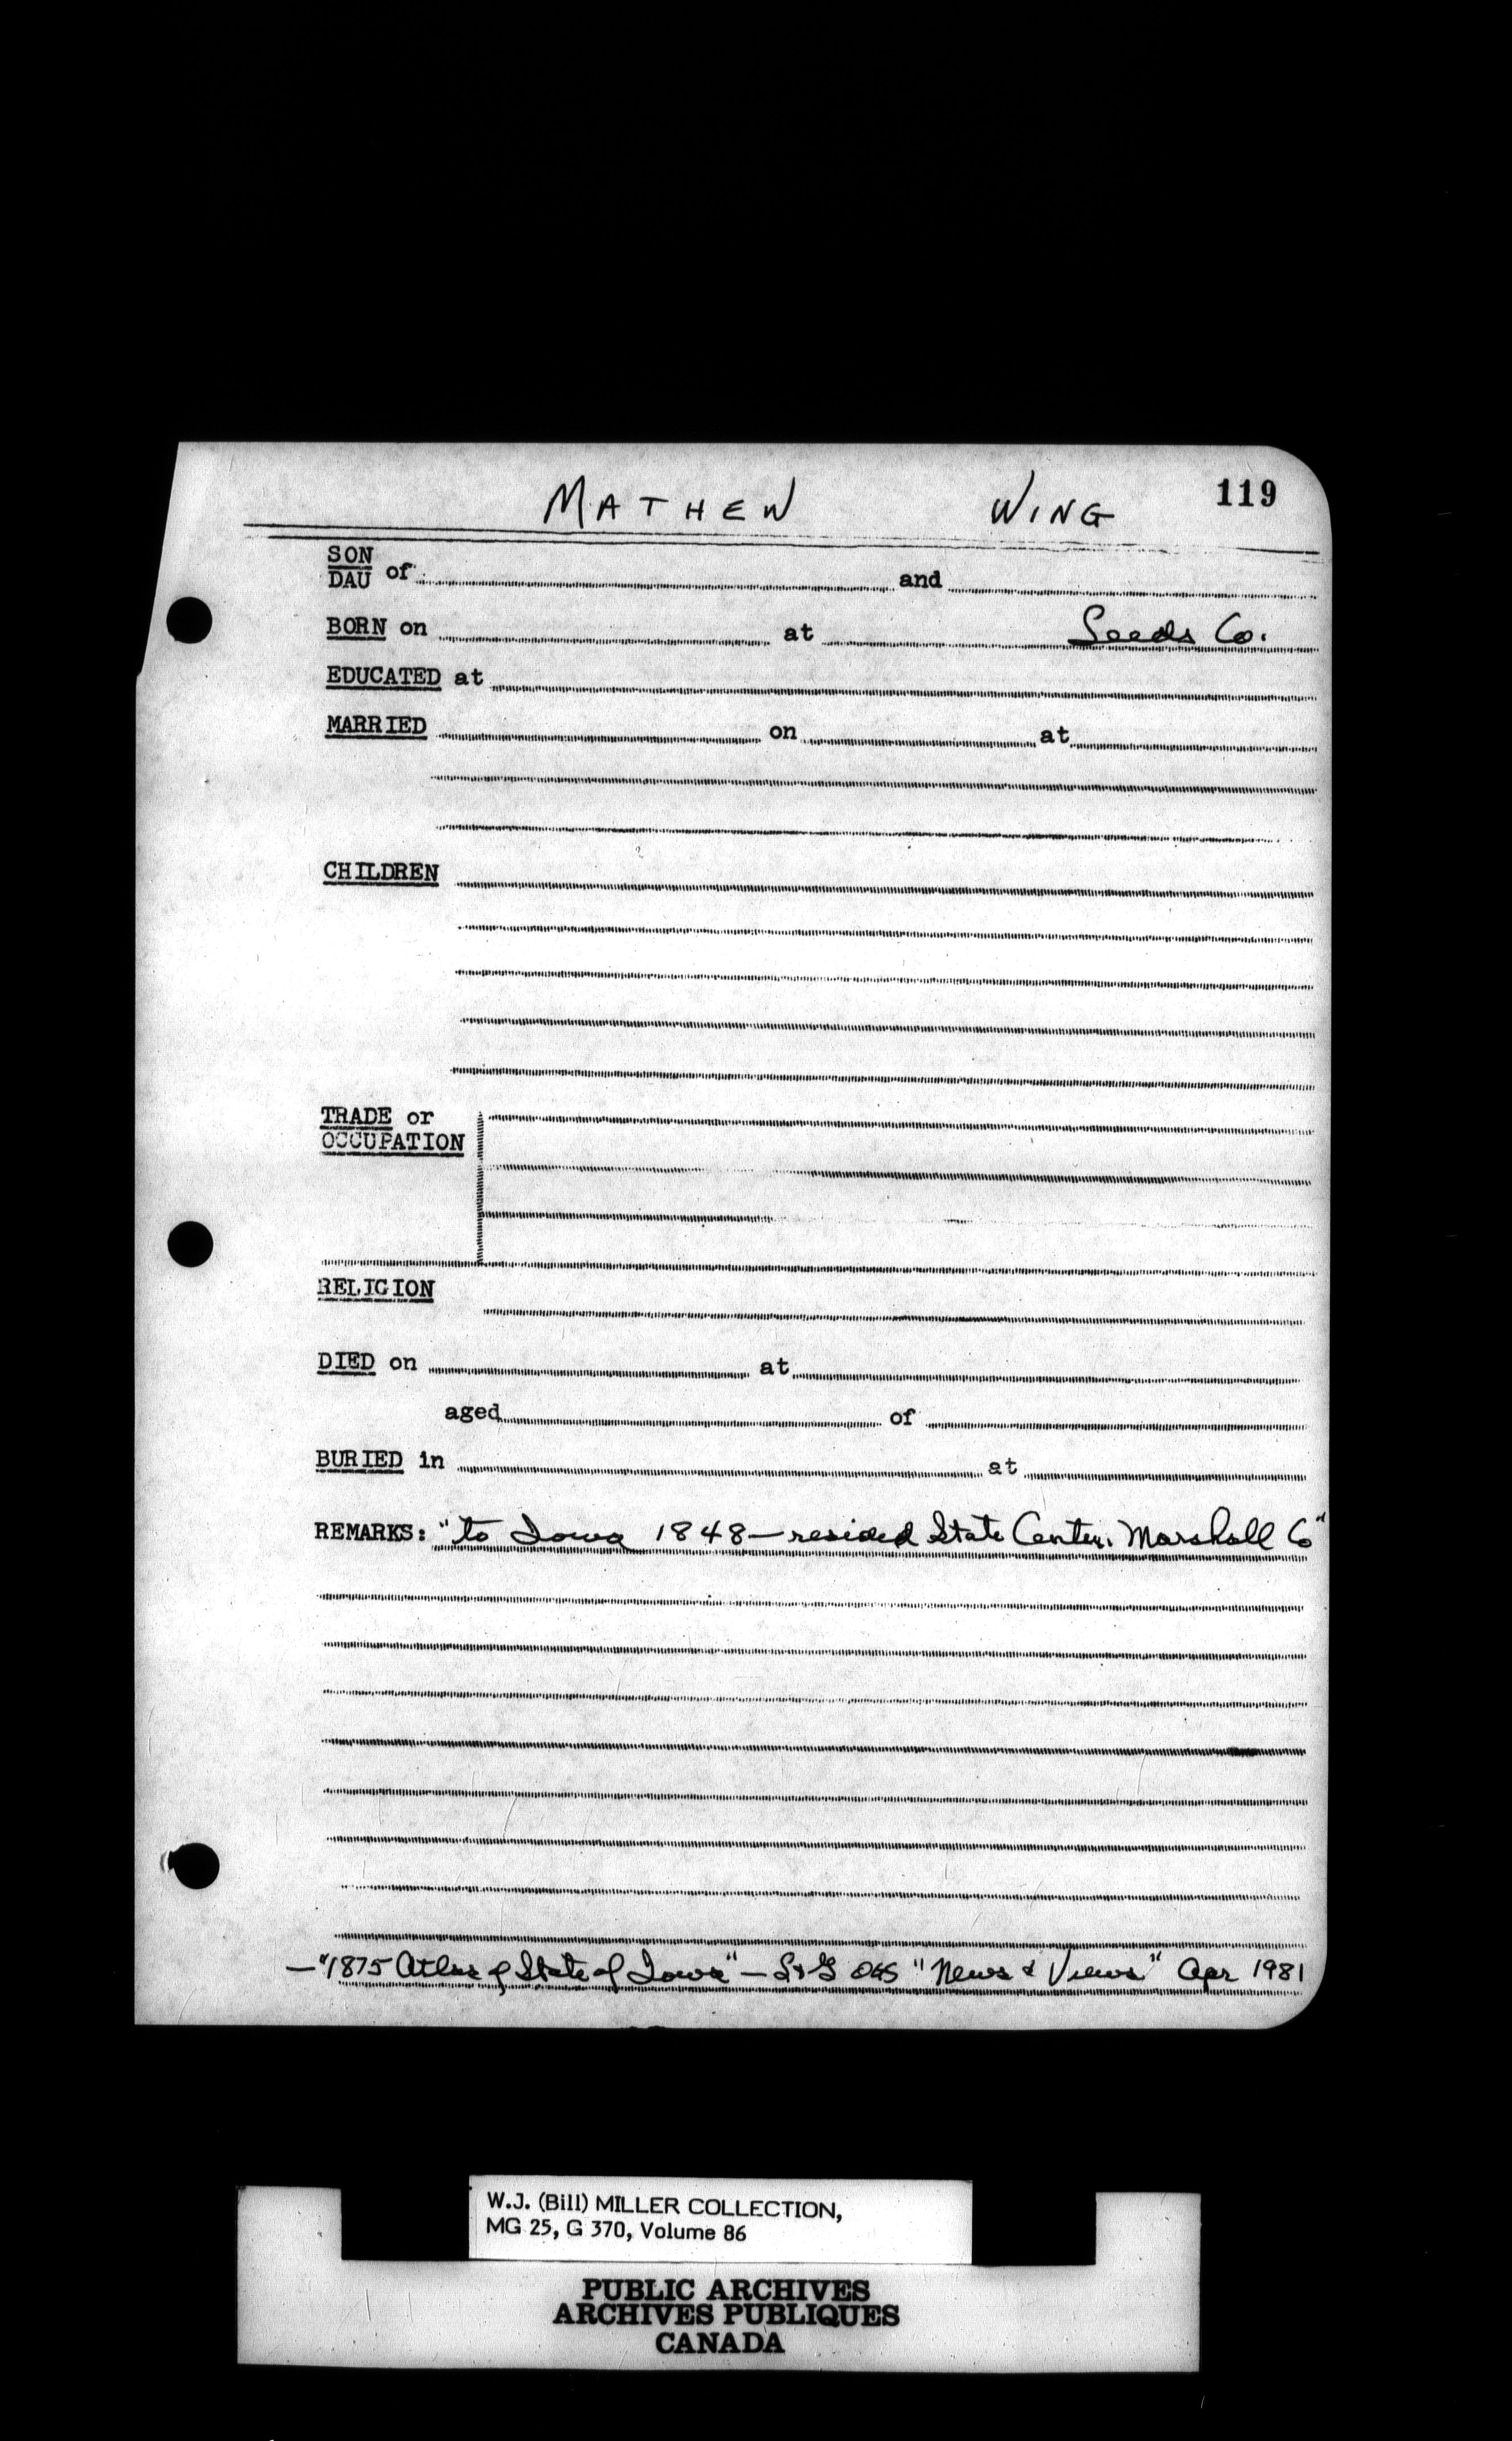 MATHEW WING 119
SON
DAU of and
BORN on at Leeds Co.
EDUCATED at
MARRIED on at
CHILDREN
TRADE or
OCCUPATION
RELIGION
DIED on at
aged of
BURIED in at
REMARKS: "to Iowa 1848—resided State Center. Marshall Co"
— "1875 Atlas of State of Iowa" — L&G OGS "News & Views" Apr 1981
W.J. (Bill) MILLER COLLECTION,
MG 25, G 370, Volume 86
PUBLIC ARCHIVES
ARCHIVES PUBLIQUES
CANADA